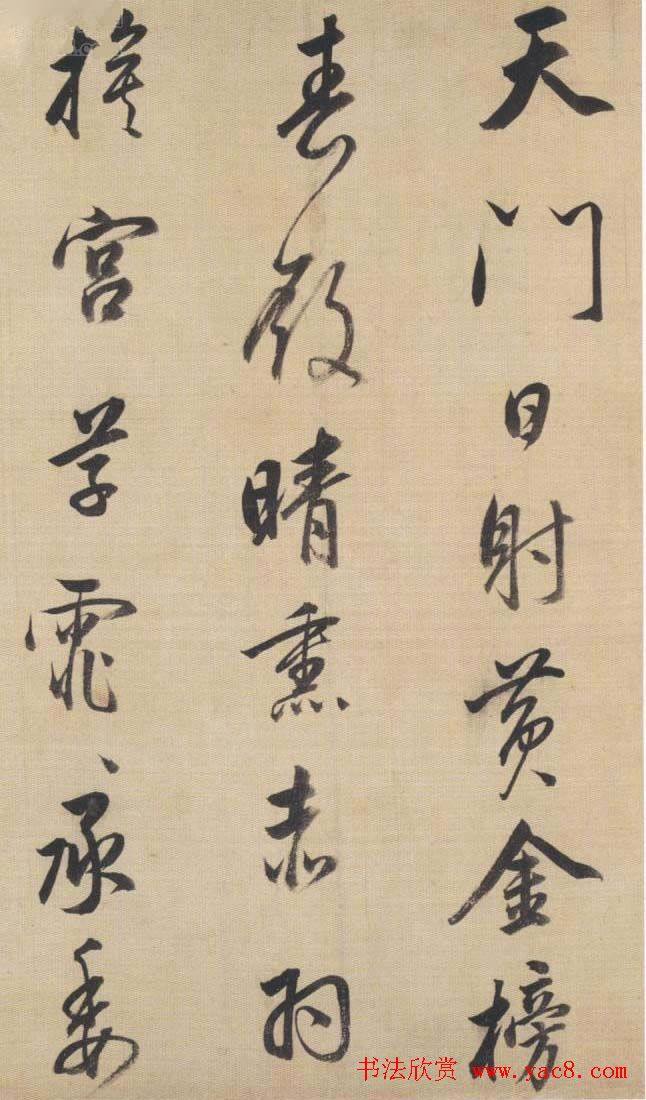 天門日射黄金榜
春殿晴熏赤羽
旗宮草霏々承委
书法欣赏 www.yac8.com